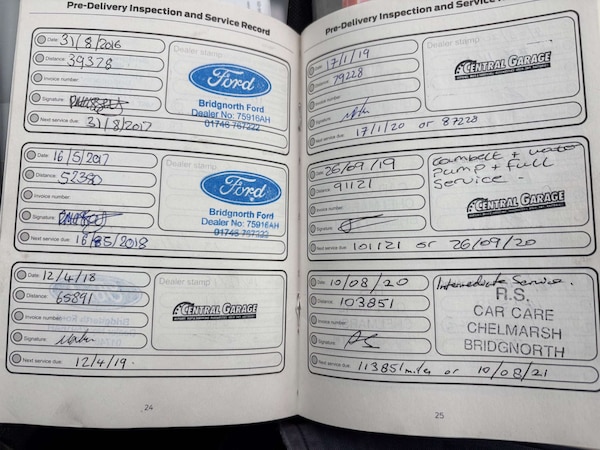 Pre-Delivery Inspection and Service Record
Date: 31/8/2016
Distance: 39328
Invoice number:
Signature:
Next service due: 31/8/2017
Dealer stamp
Ford
Bridgnorth Ford
Dealer No: 75916AH
01746 767222
Date: 16/5/2017
Distance: 52380
Invoice number:
Signature:
Next service due: 16/05/2018
Dealer stamp
Ford
Bridgnorth Ford
Dealer No: 75916AH
01746 767222
Date: 12/4/18
Distance: 65891
Invoice number:
Signature:
Next service due: 12/4/19.
Dealer stamp
CENTRAL GARAGE
24
Pre-Delivery Inspection and Service
Date: 17/1/19
Distance: 79228
Invoice number:
Signature:
Next service due: 17/1/20 or 87228
Dealer stamp
CENTRAL GARAGE
Date: 26/09/19
Distance: 91121
Invoice number:
Signature:
Next service due: 101121 or 26/09/20
Cambelt + water
pump + full
Service -
CENTRAL GARAGE
Date: 10/08/20
Distance: 103851
Invoice number:
Signature:
Next service due: 113851miles or 10/08/21
Intermediate Service.
R.S.
CAR CARE
CHELMARSH
BRIDGNORTH
25